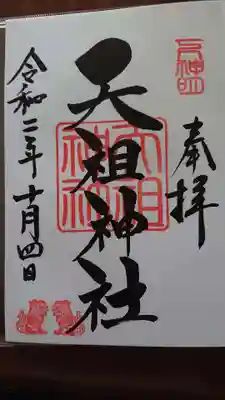 奉拝
天祖神社
令和二年十月四日
天祖神社